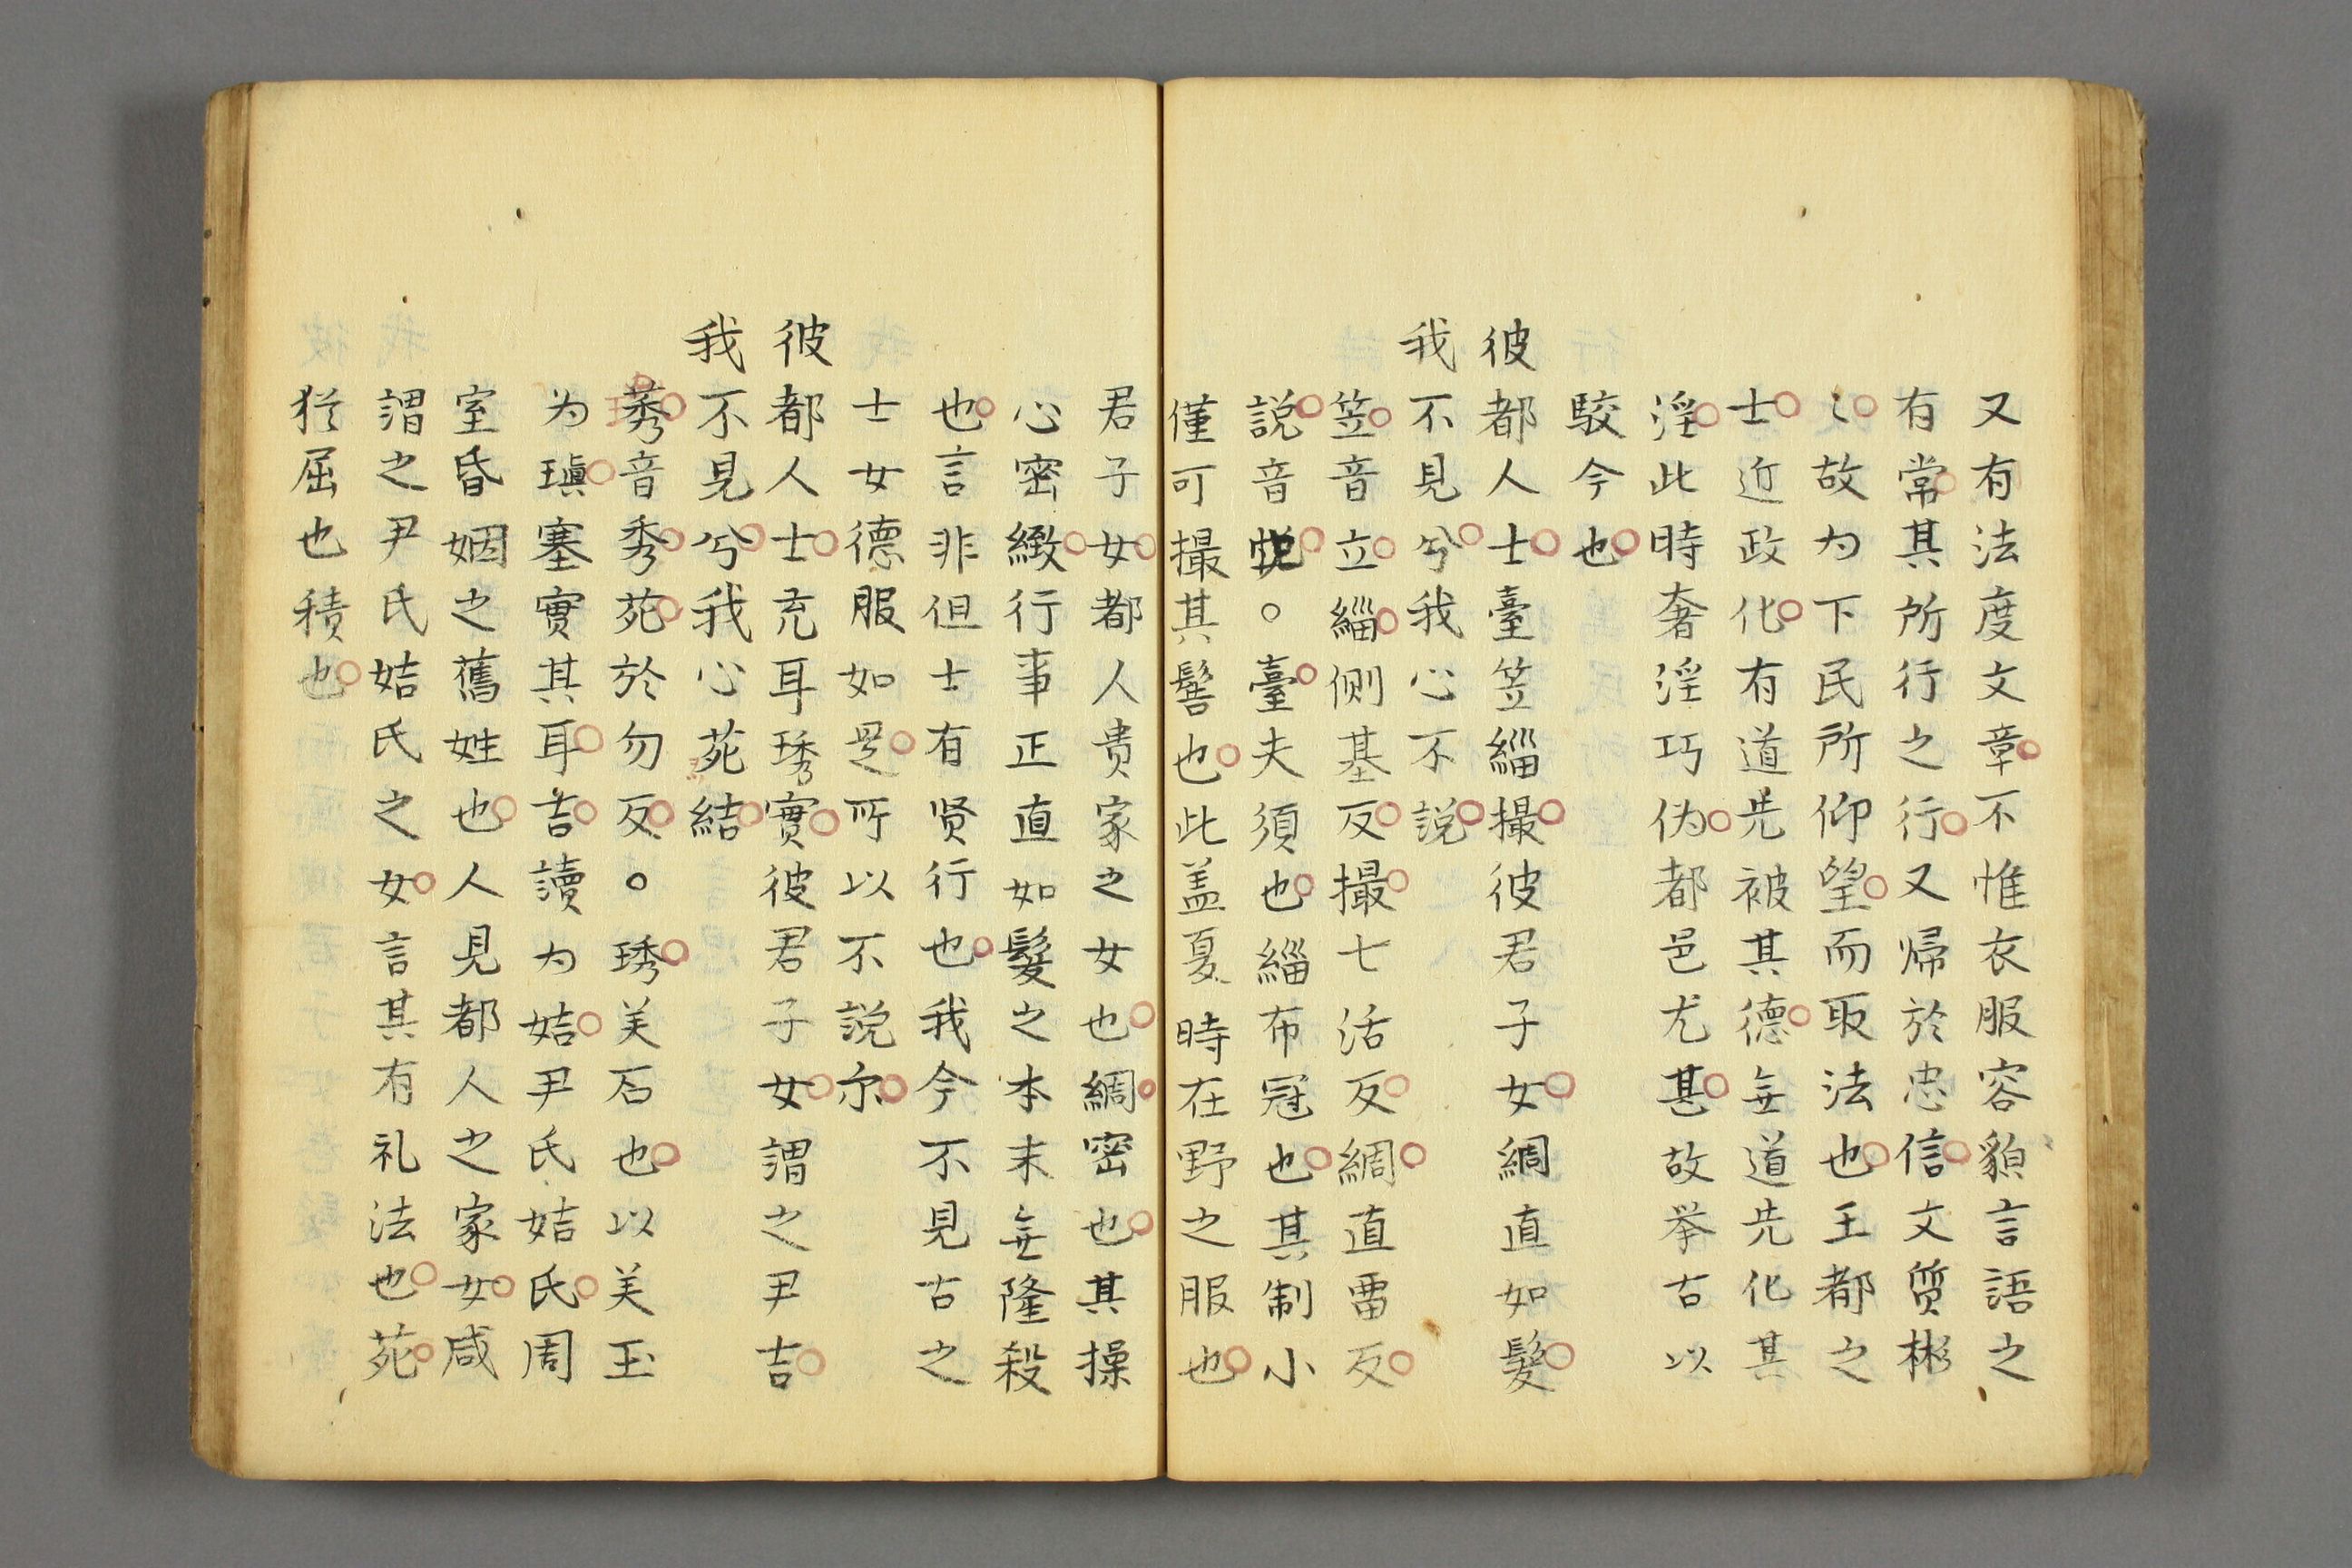 又有法度文章不惟衣服容貌言語之
有常其所行之行又帰於忠信文質彬
〻故为下民所仰望而取法也王都之
士近政化有道先被其德無道先化其
淫此時奢淫巧伪都邑尤甚故举古以
駮今也
彼都人士臺笠緇撮彼君子女綢直如髮
我不見兮我心不説
笠音立緇侧基反撮七活反綢直雷反
説音悦。臺夫須也緇布冠也其制小
僅可撮其髻也此盖夏時在野之服也
君子女都人贵家之女也綢密也其操
心密緻行事正直如髮之本末無隆殺
也言非但士有贤行也我今不見古之
士女德服如是所以不説尔
彼都人士充耳琇實彼君子女謂之尹吉
我不見兮我心苑結
莠音秀苑於勿反。琇美石也以美玉
为瑱塞實其耳吉讀为姞尹氏姞氏周
室昏姻之舊姓也人見都人之家女咸
謂之尹氏姞氏之女言其有礼法也苑
犹屈也積也